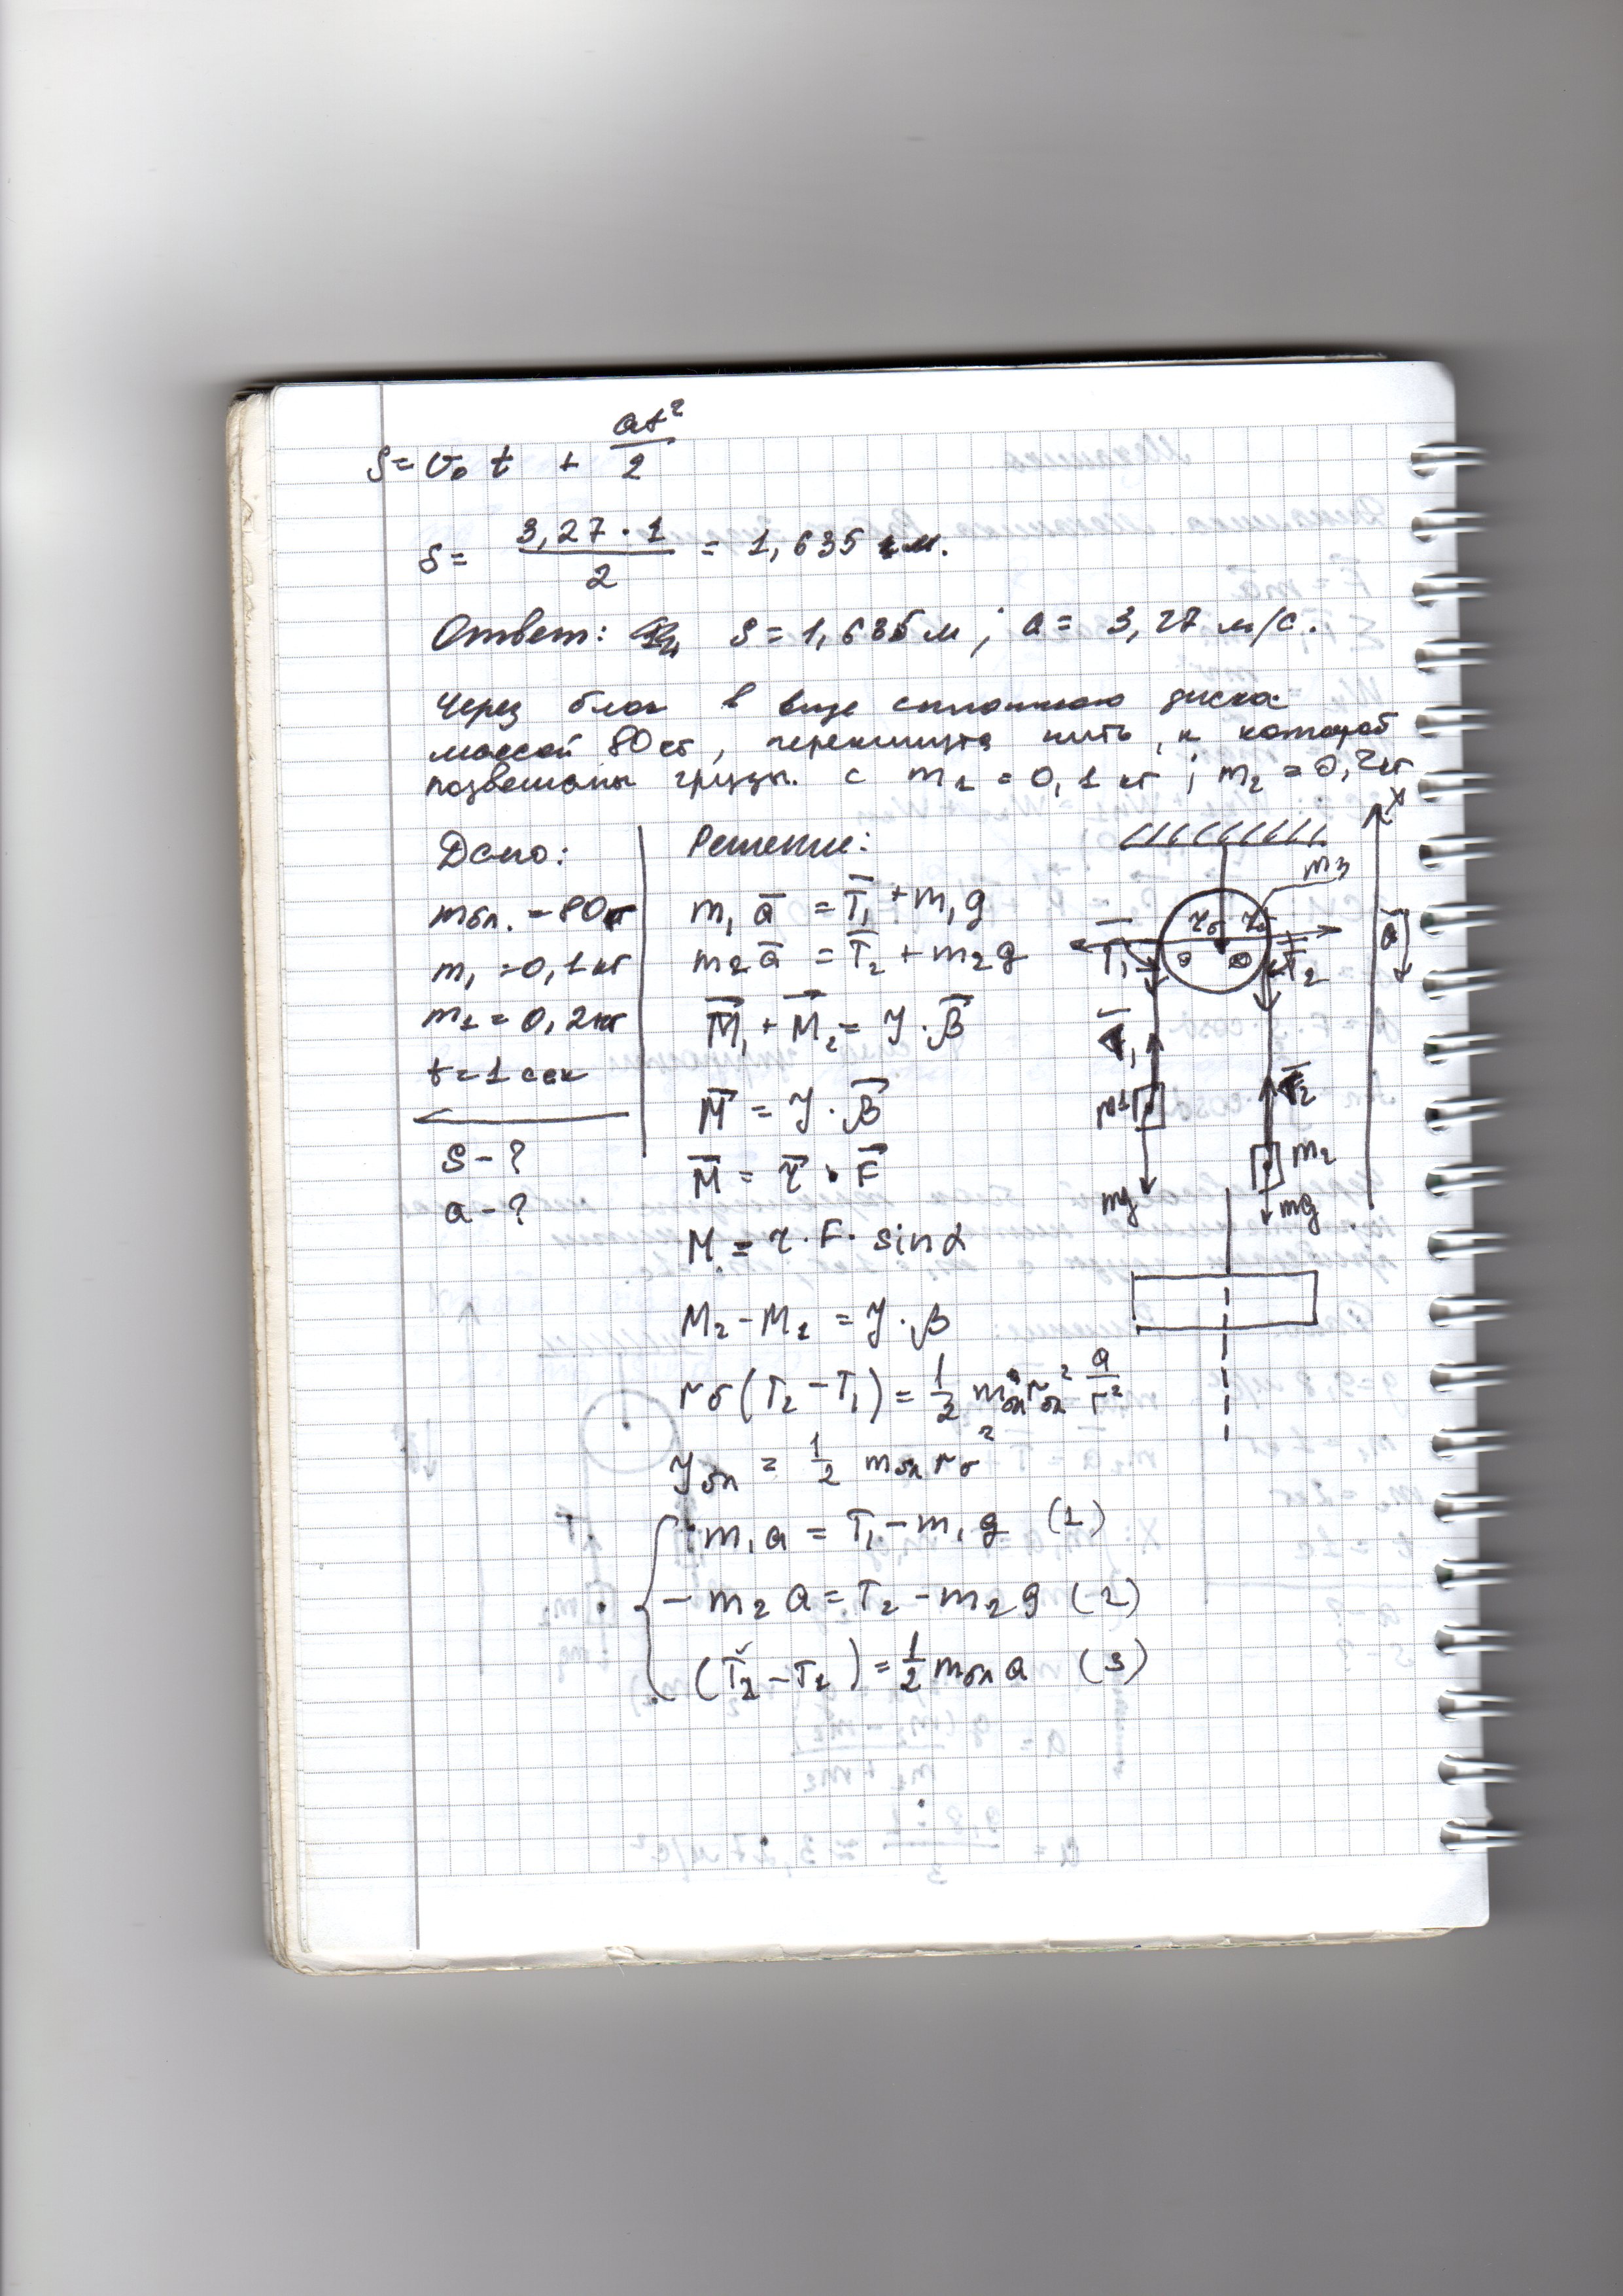 S = v₀ t + at²/2
S = 3,27 · 1 / 2 = 1,635 м.
Ответ: S = 1,635 м ; a = 3,27 м/с.
Через блок в виде сплошного диска
массой 80 кг, перекинута нить, к которой
подвешаны грузы. с m₁ = 0,1 кг ; m₂ = 0,2 кг
Дано:
mбл. = 80 кг
m₁ = 0,1 кг
m₂ = 0,2 кг
t = 1 сек
S - ?
a - ?
Решение:
m₁ a̅ = T̅₁ + m₁g
m₂ a̅ = T̅₂ + m₂g
M⃗₁ + M⃗₂ = J · β⃗
M⃗ = J · β⃗
M⃗ = r⃗ · F⃗
M = r · F · sin α
M₂ - M₁ = J · β
rб (T₂ - T₁) = 1/2 mбл rбл² a/r²
Jбл = 1/2 mбл rб²
m₁a = T₁ - m₁g (1)
- m₂a = T₂ - m₂g (2)
(T₂ - T₁) = 1/2 mбл a (3)
x
m₃
rб rб
a⃗
T̅₁
T̅₂
m1
m₂
mg
mg